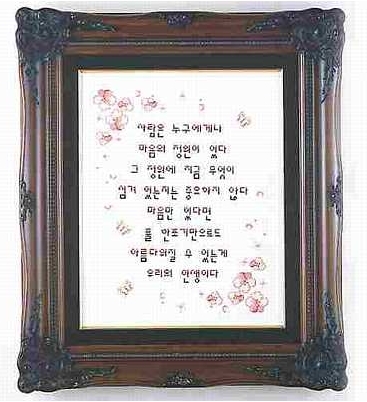 사람은 누구에게나
마음의 정원이 있다
그 정원에 지금 무엇이
심겨 있는지는 중요하지 않다
마음만 있다면
풀 한포기만으로도
아름다워질 수 있는게
우리의 인생이다